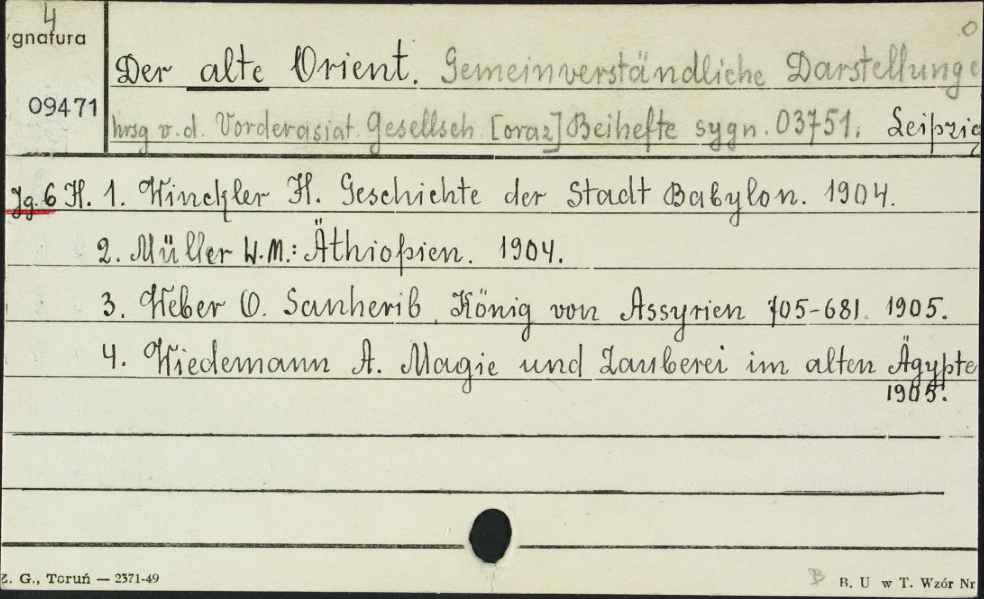 4
ygnatura
09471
O
Der alte Orient. Gemeinverständliche Darstellunge
hrsg v. d. Vorderasiat. Gesellsch. [oraz] Beihefte sygn. 03751. Leipzig
Jg. 6 H. 1. Winckler H. Geschichte der Stadt Babylon. 1904.
2. Müller W. M.: Äthiopien. 1904.
3. Weber O. Sanherib, König von Assyrien 705-681. 1905.
4. Wiedemann A. Magie und Zauberei im alten Ägypte
1905.
Z. G., Toruń — 2371-49
B
B. U w T. Wzór Nr